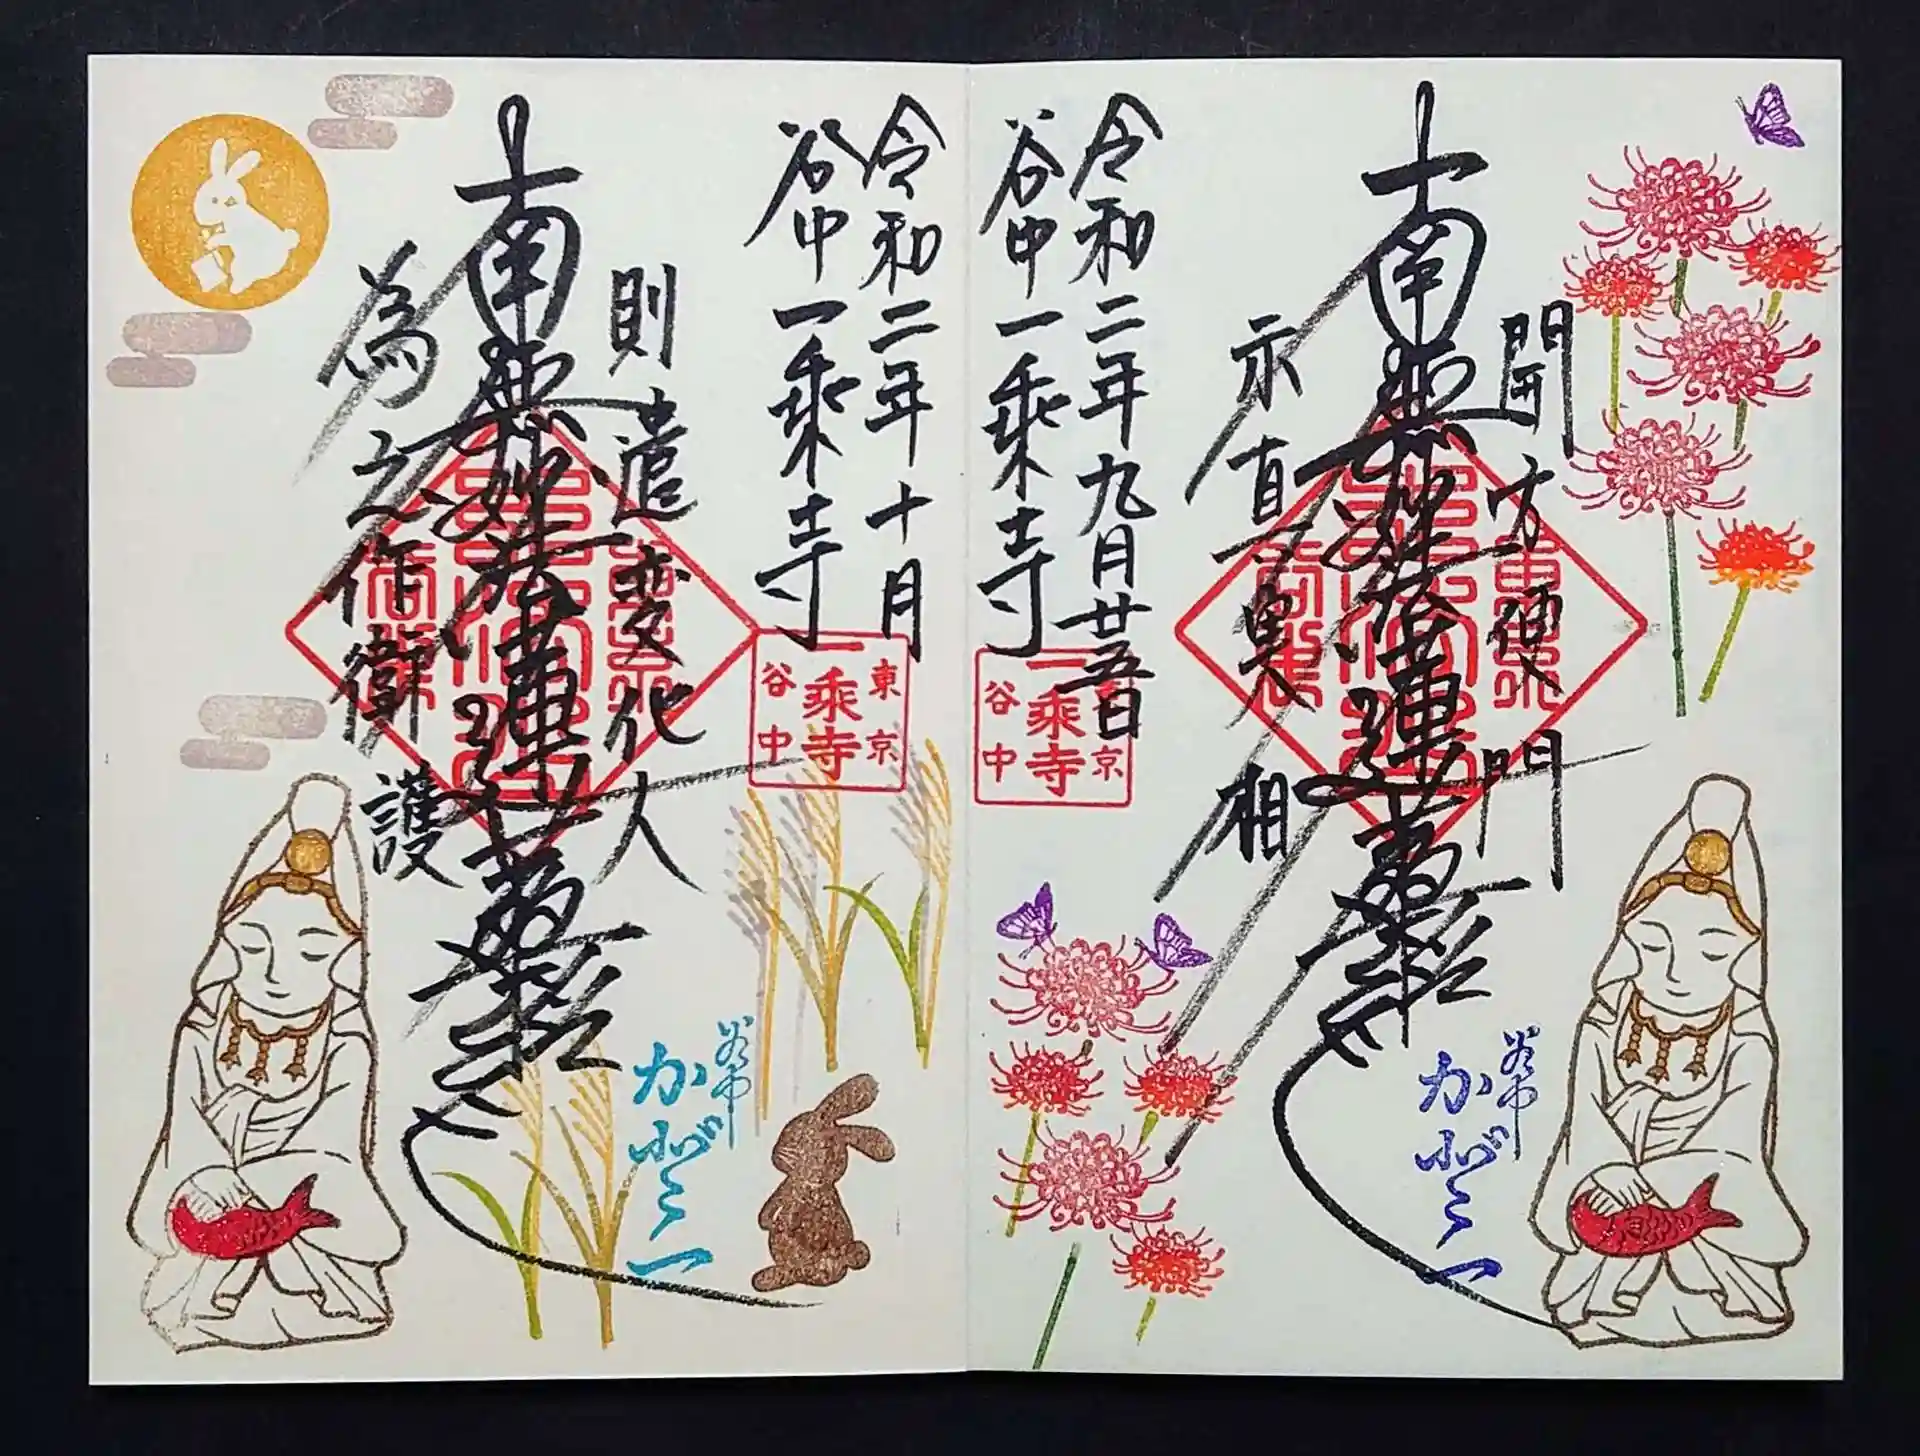 開方便門
南無妙法蓮華經
示真実相
令和二年九月廿五日
谷中一乗寺
京
一乗寺
谷中
谷中
令和二年十月
谷中一乗寺
東京
一乗寺
谷中
則遣変化人
南無妙法蓮華經
為之作衛護
谷中